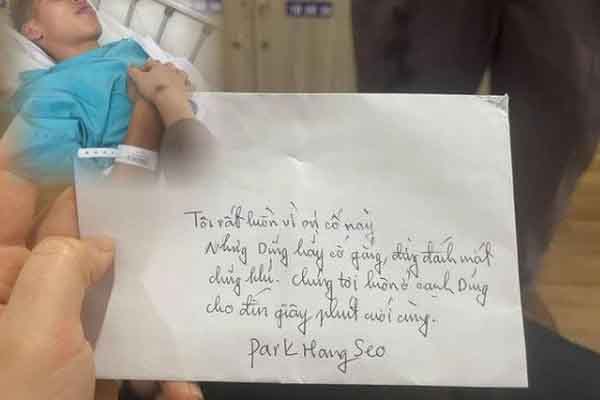 Tôi rất luồn vì sự cố này
Nhưng Dũng hãy cố gắng, đừng đánh mất
dũng khí. Chúng tôi luôn ở cạnh Dũng
cho đến giây phút cuối cùng.
Park Hang Seo